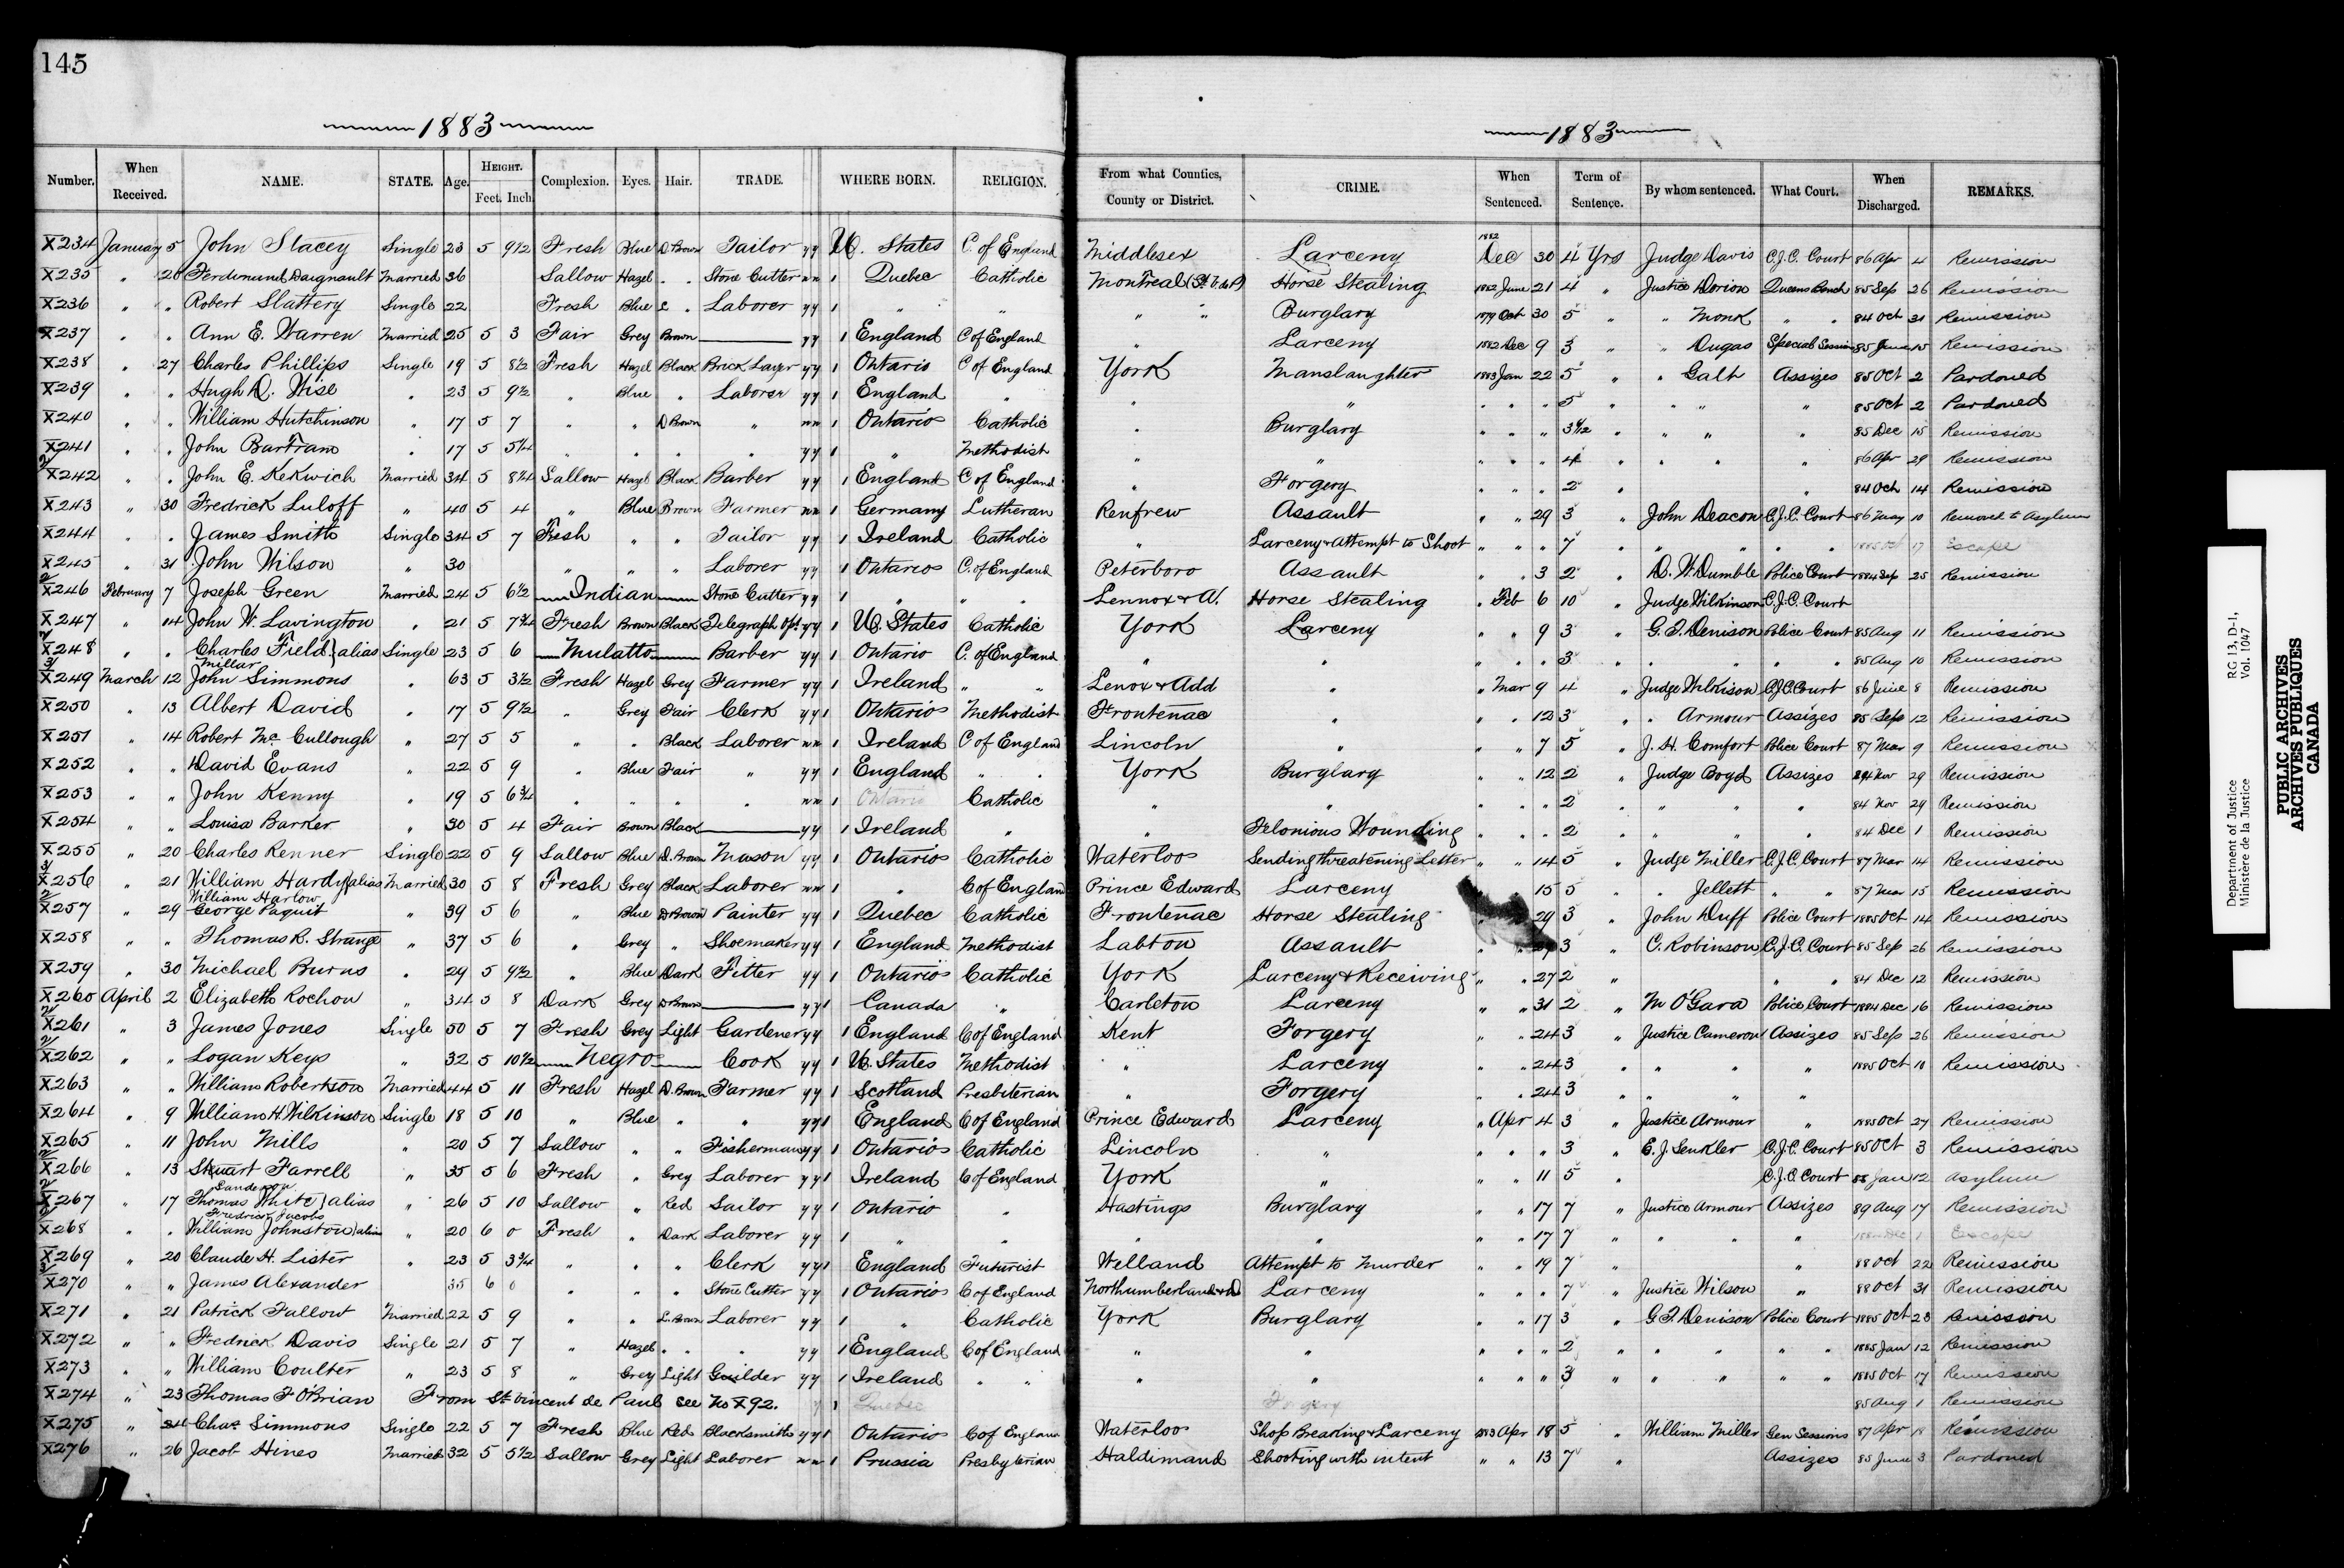 145
1883
1883
Number. When Received. NAME. STATE. Age. HEIGHT. Feet. Inch. Complexion. Eyes. Hair. TRADE. WHERE BORN. RELIGION. From what Counties, County or District. CRIME. When Sentenced. Term of Sentence. By whom sentenced. What Court. When Discharged. REMARKS.
X234 January 5 John Stacey Single 23 5 9½ Fresh Blue D Brown Tailor yy U. States C. of England Middlesex Larceny 1882 Dec 30 4 Yrs Judge Davis C.J.C. Court 86 Apr 4 Remission
X235 " 26 Ferdinand Daignault Married 36 Sallow Hazel " " Stone Cutter nn 1 Quebec Catholic Montreal (St V de P) Horse Stealing 1882 June 21 4 " Justice Dorion Queens Bench 85 Sep 26 Remission
X236 " " Robert Slattery Single 22 Fresh Blue L " Laborer yy 1 " " " " Burglary 1879 Oct 30 5 " " Monk " " 84 Oct 31 Remission
X237 " " Ann E. Warren Married 25 5 3 Fair Grey Brown — yy 1 England C of England " Larceny 1882 Dec 9 3 " " Dugas Special Session 85 June 15 Remission
X238 " 27 Charles Phillips Single 19 5 8½ Fresh Hazel Black Brick Layer yy 1 Ontario C of England York Manslaughter 1883 Jan 22 5 " " Galt Assizes 85 Oct 2 Pardoned
X239 " " Hugh D. Wise " 23 5 9½ " Blue " Laborer yy 1 England " " " " " " 5 " " " " 85 Oct 2 Pardoned
X240 " " William Hutchinson " 17 5 7 " " D Brown " nn 1 Ontario Catholic " Burglary " " " " " " " 85 Dec 15 Remission
X241 " " John Bartram " 17 5 5¼ " " " " yy 1 " Methodist " " " " " 4 " " " " 86 Apr 29 Remission
2/ X242 " " John E. Kekwich Married 34 5 8¼ Sallow Hazel Black Barber yy 1 England C of England " Forgery " " " 2 " " 84 Oct 14 Remission
X243 " 30 Fredrick Luloff " 40 5 4 " Blue Brown Farmer nn 1 Germany Lutheran Renfrew Assault " " 29 3 " John Deacon C.J.C. Court 86 May 10 Removed to Asylum
X244 " " James Smith Single 34 5 7 Fresh " " Tailor yy 1 Ireland Catholic " Larceny & Attempt to Shoot " " " 7 " " " " " 17 Escape
X245 " 31 John Wilson " 30 " " " Laborer yy 1 Ontario C. of England Peterboro Assault " " 3 2 " D. W. Dumble Police Court 1884 Sep 25 Remission
2/ X246 February 7 Joseph Green Married 24 5 6½ Indian Stone Cutter yy 1 " " " Lennox & A. Horse Stealing " Feb 6 10 " Judge Wilkinson C.J.C. Court
X247 " 14 John W. Lavington " 21 5 7¾ Fresh Brown Black Telegraph Opt. yy 1 U. States Catholic York Larceny " " 9 3 " G. T. Denison Police Court 85 Aug 11 Remission
X248 " " Charles Field } alias Single 23 5 6 Mulatto Barber yy 1 Ontario C. of England " " " " " 3 " " " " " 85 Aug 10 Remission
Millar
3/ X249 March 12 John Simmons " 63 5 3½ Fresh Hazel Grey Farmer yy 1 Ireland " " Lenox & Add " " Mar 9 4 " Judge Wilkison C.J.C. Court 86 June 8 Remission
X250 " 13 Albert David " 17 5 9½ " Grey Fair Clerk yy 1 Ontario Methodist Frontenac " " " 12 3 " " Armour Assizes 85 Sep 12 Remission
X251 " 14 Robert McCullough " 27 5 5 " " Black Laborer nn 1 Ireland C of England Lincoln " " " 7 5 " J. H. Comfort Police Court 87 Mar 9 Remission
X252 " " David Evans " 22 5 9 " Blue Fair " yy 1 England " " York Burglary " " 12 2 " Judge Boyd Assizes 84 Nov 29 Remission
X253 " " John Kenny " 19 5 6¾ " " " " nn 1 Ontario Catholic " " " " " 2 " " " " 84 Nov 29 Remission
X254 " " Louisa Barker " 30 5 4 Fair Brown Black — yy 1 Ireland " " Felonious Wounding " " " 2 " " " " 84 Dec 1 Remission
X255 " 20 Charles Renner Single 22 5 9 Sallow Blue D. Brown Mason yy 1 Ontario Catholic Waterloo Sending threatening Letter " " 14 5 " Judge Miller C.J.C. Court 87 Mar 14 Remission
3/ X256 " 21 William Hardy } alias Married 30 5 8 Fresh Grey Black Laborer nn 1 " C of England Prince Edward Larceny 15 5 " " Jellett " " 87 Mar 15 Remission
William Harlow
2/ X257 " 29 George Paquit " 39 5 6 " Blue D Brown Painter yy 1 Quebec Catholic Frontenac Horse Stealing 29 3 " John Duff Police Court 1885 Oct 14 Remission
X258 " " Thomas R. Strange " 37 5 6 " Grey " Shoemaker yy 1 England Methodist Labton Assault " " 3 " C. Robinson C.J.C. Court 85 Sep 26 Remission
X259 " 30 Michael Burns " 29 5 9½ " Blue Dark Fitter yy 1 Ontario Catholic York Larceny & Receiving " " 27 2 " " " 84 Dec 12 Remission
X260 April 2 Elizabeth Rochon " 34 5 8 Dark Grey D Brown — yy 1 Canada " Carleton Larceny " " 31 2 " M O'Gara Police Court 1884 Dec 16 Remission
2/ X261 " 3 James Jones Single 50 5 7 Fresh Grey Light Gardener yy 1 England C of England Kent Forgery " " 24 3 " Justice Cameron Assizes 85 Sep 26 Remission
2/ X262 " " Logan Keys " 32 5 10½ Negro Cook yy 1 U. States Methodist " Larceny " " 24 3 " " " " 1885 Oct 10 Remission
X263 " " William Robertson Married 44 5 11 Fresh Hazel D. Brown Farmer yy 1 Scotland Presbiterian " Forgery " " 24 3 " " " "
X264 " 9 William H Wilkinson Single 18 5 10 " Blue " " yy 1 England C of England Prince Edward Larceny " Apr 4 3 " Justice Armour " 1885 Oct 27 Remission
X265 " 11 John Mills " 20 5 7 Sallow " " Fisherman yy 1 Ontario Catholic Lincoln " " " " 3 " E. J. Senkler C.J.C. Court 85 Oct 3 Remission
X266 " 13 Stuart Farrell " 35 5 6 Fresh " Grey Laborer yy 1 Ireland C of England York " " " 11 5 " C.J.C. Court 88 Jan 12 Asylum
Sanderson
2/ X267 " 17 Thomas White } alias " 26 5 10 Sallow " Red Sailor yy 1 Ontario " Hastings Burglary " " 17 7 " Justice Armour Assizes 89 Aug 17 Remission
Fredrick Jacobs
X268 " " William Johnston } alias " 20 6 0 Fresh " Dark Laborer yy 1 " " " " " " 17 7 " " " " 1 Escape
X269 " 20 Claude H. Lister " 23 5 3¾ " " " Clerk yy 1 England Futurist Welland Attempt to Murder " " 19 7 " " 88 Oct 22 Remission
3/ X270 " " James Alexander " 35 6 0 " " " Stone Cutter yy 1 Ontario C of England Northumberland & D Larceny " " " 7 " Justice Wilson " 88 Oct 31 Remission
X271 " 21 Patrick Fallow Married 22 5 9 " " L. Brown Laborer yy 1 " Catholic York Burglary " " 17 3 " G T. Denison Police Court 1885 Oct 23 Remission
X272 " " Fredrick Davis Single 21 5 7 " Hazel " " " yy 1 England C of England " " " " " 2 " " " " " 1885 Jan 12 Remission
X273 " " William Coulter " 23 5 8 " Grey Light Guilder yy 1 Ireland " " " " " " " 3 " " " " " 1885 Oct 17 Remission
X274 " 23 Thomas F O'Brian From St. Vincent de Paul see No X92. Quebec Forgery 85 Aug 1 Remission
X275 " 24 Chas Simmons Single 22 5 7 Fresh Blue Red Blacksmith yy 1 Ontario C of England Waterloo Shop Breaking & Larceny 1883 Apr 18 5 " William Miller Gen Sessions 87 Apr 18 Remission
X276 " 26 Jacob Hines Married 32 5 5½ Sallow Grey Light Laborer nn 1 Prussia Presbyterian Haldimand Shooting with intent " " 13 7 " Assizes 85 June 3 Pardoned
Department of Justice RG 13, D-1,
Ministère de la Justice Vol. 1047
PUBLIC ARCHIVES
ARCHIVES PUBLIQUES
CANADA